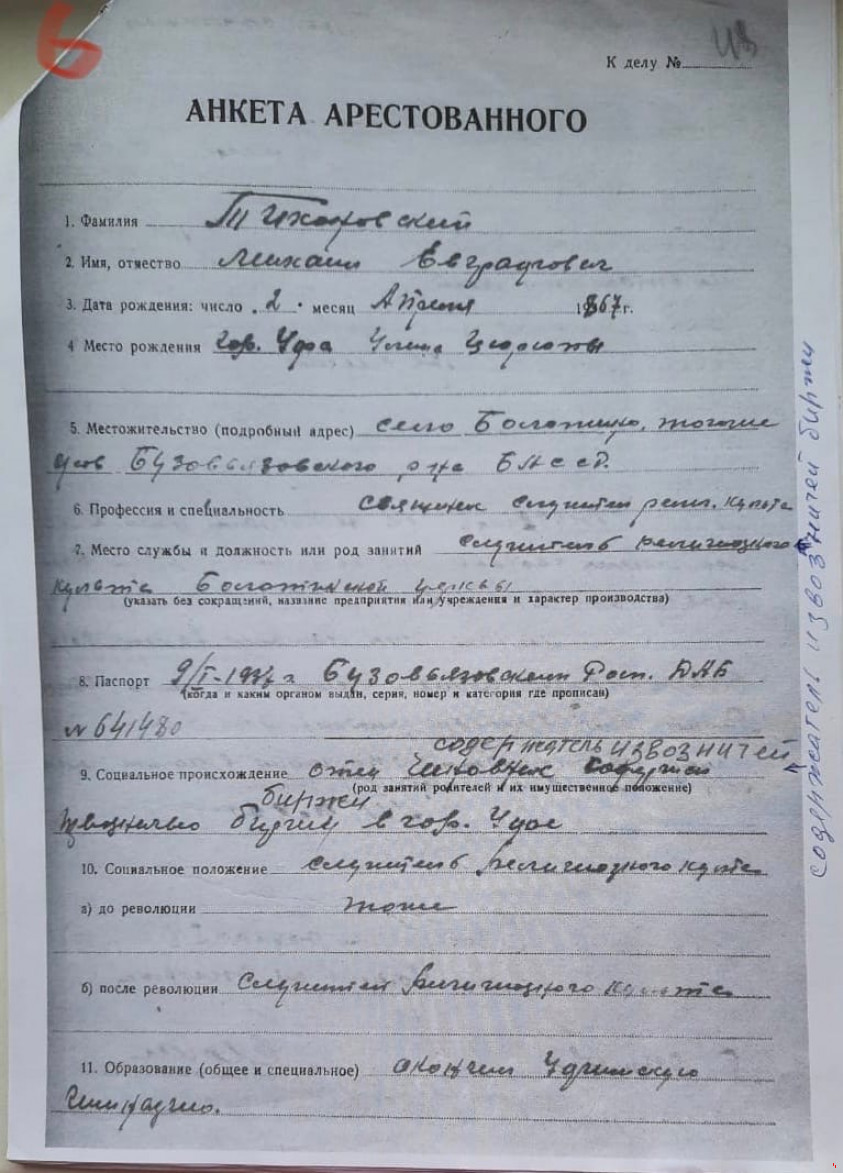 6
К делу №
АНКЕТА АРЕСТОВАННОГО
1. Фамилия Тихоновский
2. Имя, отчество Михаил Евграфович
3. Дата рождения: число 2. месяц Апреля 1867 г.
4 Место рождения Гор. Уфа Улица
5. Местожительство (подробный адрес) село
Бузовьязовского р-на БАССР.
6. Профессия и специальность священик служитель религ. культа
7. Место службы и должность или род занятий служитель религиозного
культа церквы
(указать без сокращений, название предприятия или учреждения и характер производства)
8. Паспорт 9/I-1937 г Бузовьязовским
(когда и каким органом выдан, серия, номер и категория где прописан)
№ 641480
содержатель извозничей
9. Социальное происхождение отец чиновник
(род занятий родителей и их имущественное положение)
биржи
биржи в гор. Уфе
10. Социальное положение служитель религиозного культа
а) до революции тоже
б) после революции служител религиозного культа
11. Образование (общее и специальное) окончил Уфимскую
Гимназию.
содержатель извозничей биржи